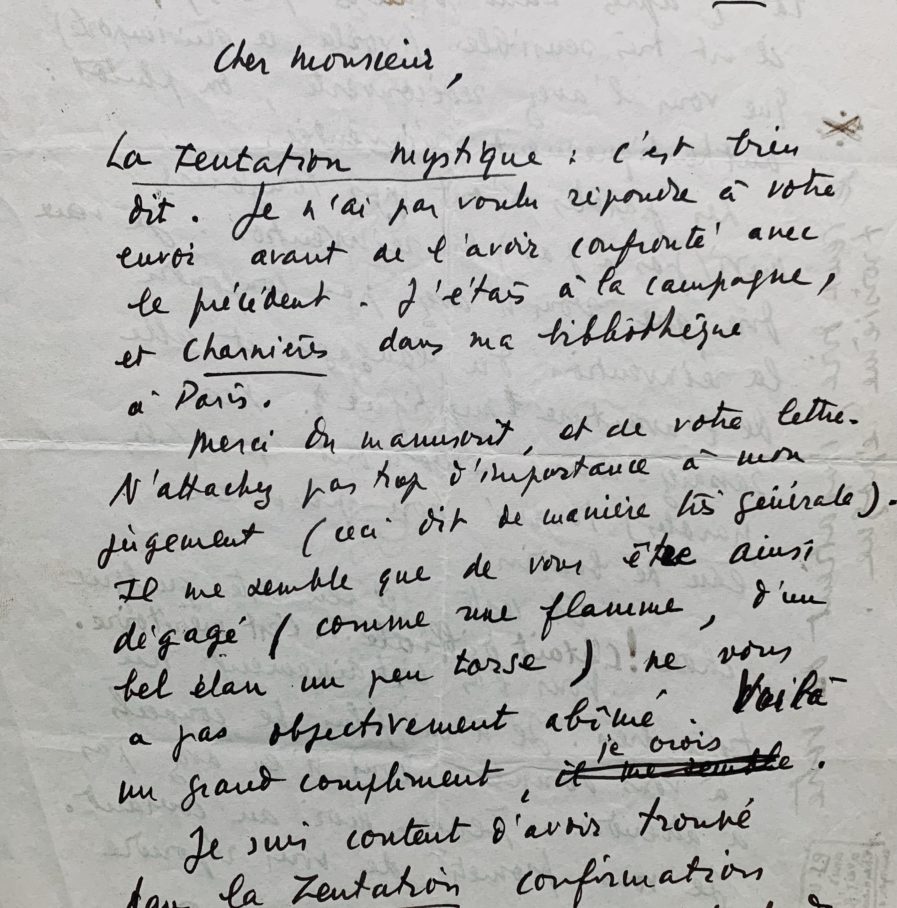 Cher Monsieur,
La Tentation mystique : c'est bien
dit. Je n'ai pas voulu répondre à votre
envoi avant de l'avoir confronté avec
le précédent. J'étais à la campagne,
et Charnières dans ma bibliothèque
à Paris.
Merci du manuscrit, et de votre lettre.
N'attachez pas trop d'importance à mon
jugement (ceci dit de manière très générale).
Il me semble que de vous être ainsi
dégagé (comme une flamme, d'un
bel élan un peu torse) ne vous
a pas objectivement abîmé. Voilà
je crois
un grand compliment, il me semble.
Je suis content d'avoir trouvé
dans la Tentation confirmation